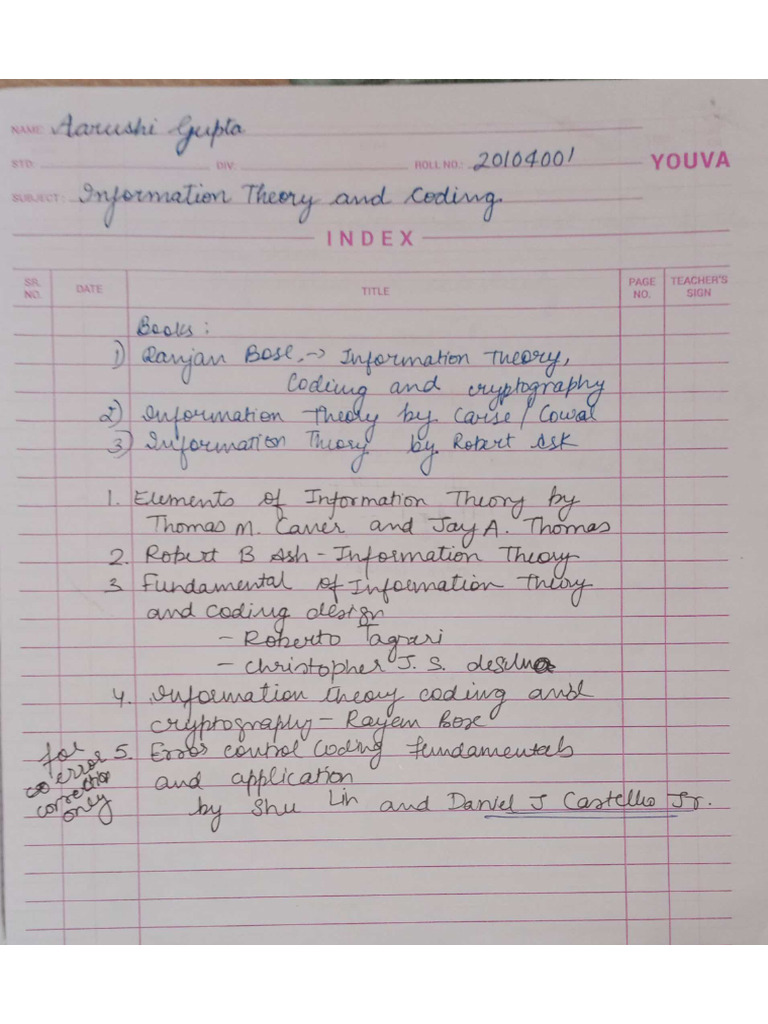 NAME: Aarushi Gupta
STD. DIV: ROLL NO.: 20104001 YOUVA
SUBJECT: Information Theory and Coding
INDEX
SR. NO. DATE TITLE PAGE NO. TEACHER'S SIGN
Books:
1) Ranjan Bose → Information Theory,
Coding and cryptography
2) Information Theory by Carse / Cowal
3) Information Theory by Robert Ask
1. Elements of Information Theory by
Thomas M. Caver and Jay A. Thomas
2. Robert B Ash - Information Theory
3 Fundamental of Information Theory
and coding design
- Roberto Tagrari
- Christopher J. S. desilva
4. Information theory coding and
cryptography - Rayem Bose
5. Error control Coding fundamentals
and application
by Shu Lin and Daniel J Castello Jr.
for
error
correction
only